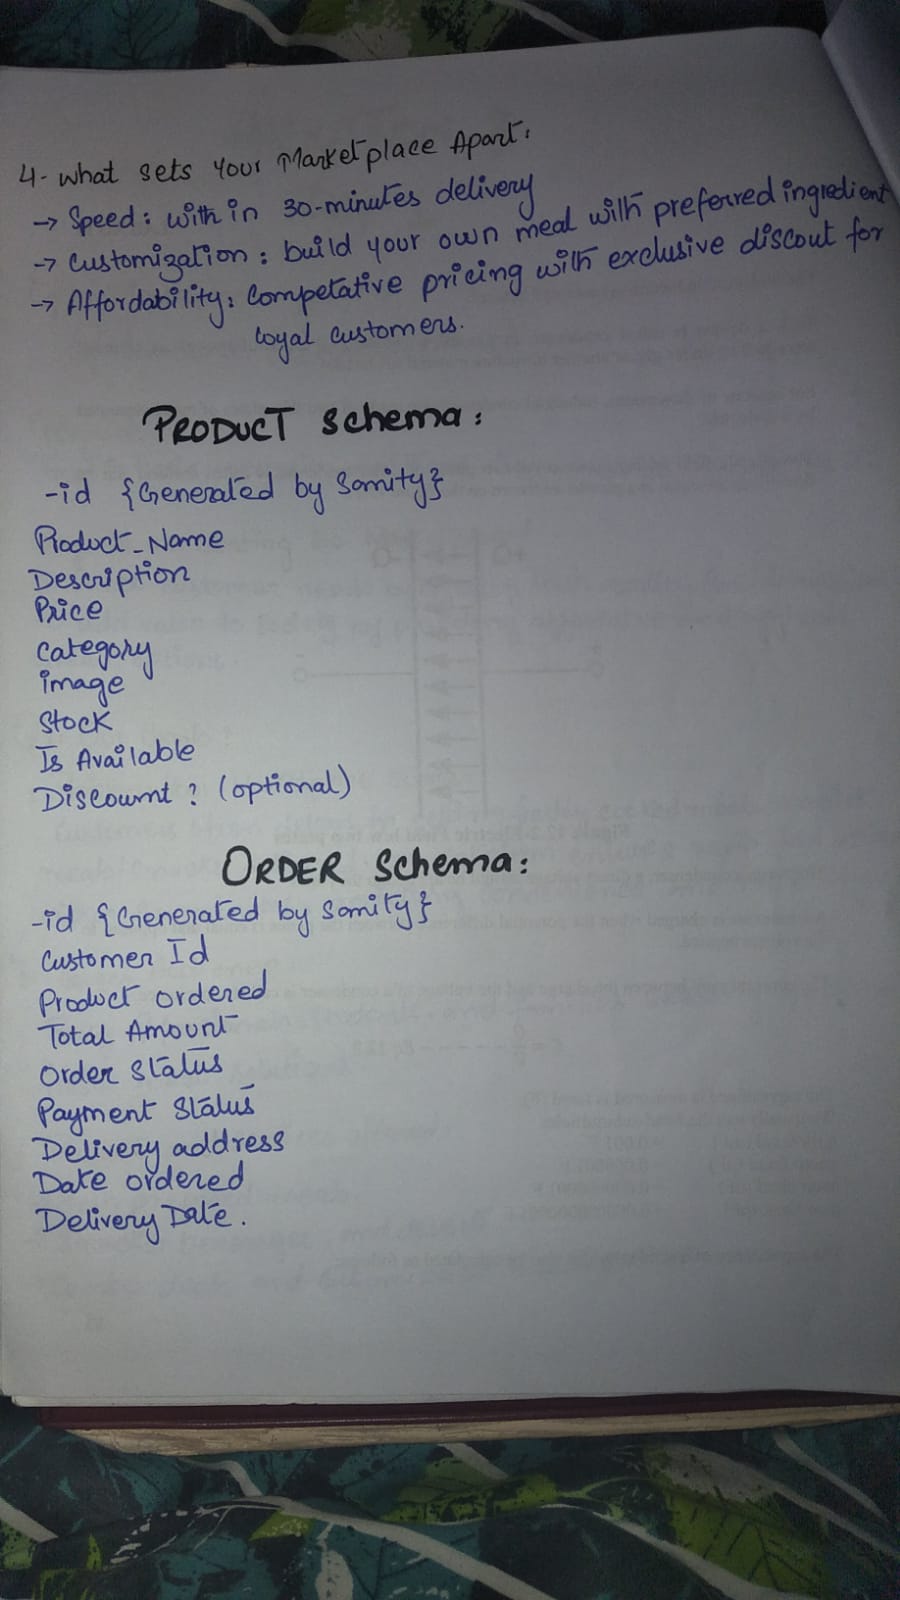 4- what sets Your Marketplace Apart:
→ Speed: with in 30-minutes delivery
→ Customization: build your own meal with preferred ingredient
→ Affordability: Competative pricing with exclusive discout for
loyal customers.
PRODUCT Schema:
-id {Generated by Sanity}
Product_Name
Description
Price
Category
image
Stock
Is Available
Discount ? (optional)
ORDER Schema:
-id {Generated by Sanity}
Customer Id
Product ordered
Total Amount
Order Status
Payment Status
Delivery address
Date ordered
Delivery Date.